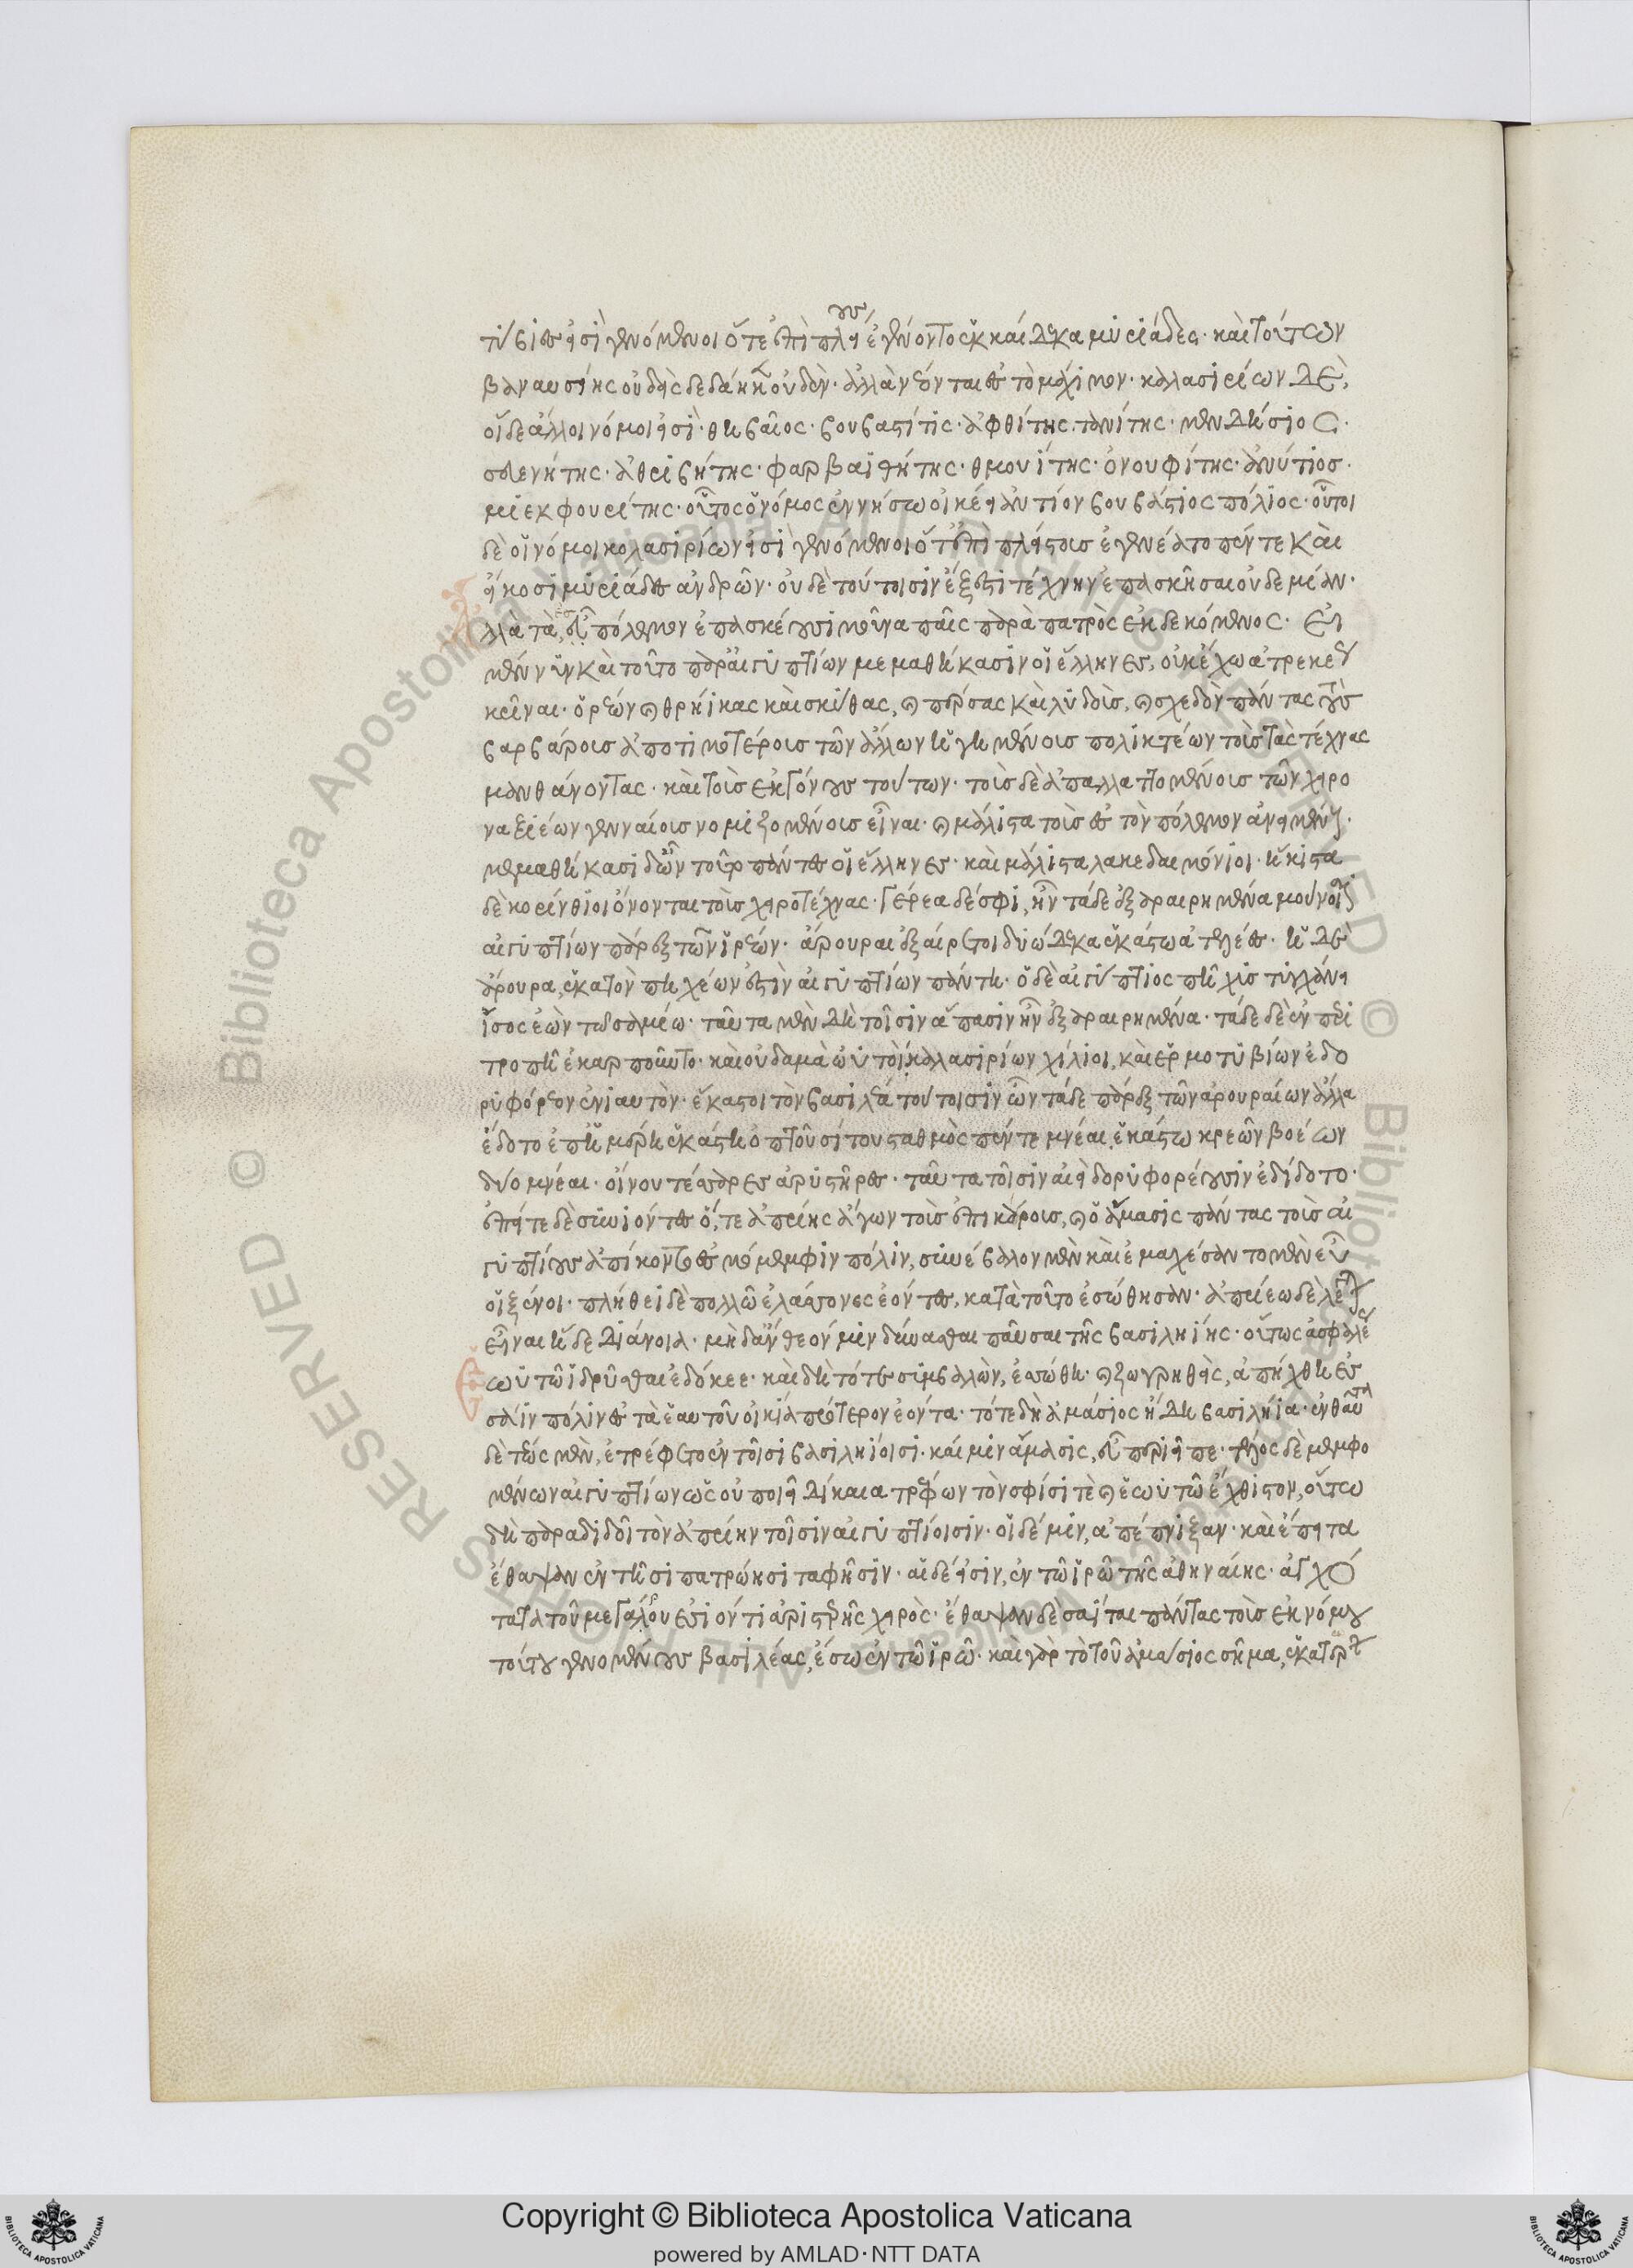 τύβιες εἰσὶ γενόμενοι ὅτε ἐπὶ πλείστους ἐγένοντο ἑκκαίδεκα μυριάδες· καὶ τούτων
βαναυσίης οὐδεὶς δεδάηκεν οὐδέν· ἀλλ' ἀνέονται ἐς τὸ μάχιμον· καλασιρίων δὲ,
οἵδε ἄλλοι νόμοι εἰσὶ· θηβαῖος· βουβαστίτις· ἀφθίτης· τανίτης· μενδήσιος·
σεβενύτης· ἀθριβήτης· φαρβαιθήτης· θμουίτης· ὀνουφίτης· ἀνύτιος·
μιεκφουρίτης· οὗτος ὁ νόμος ἐν νήσω οἰκέει ἀντίον βουβάστιος πόλιος· οὗτοι
δὲ οἱ νόμοι καλασιρίων εἰσὶ γενόμενοι ὅτ' ἐπὶ πλείστους ἐγενέατο πέντε καὶ
εἴκοσι μυριάδες ἀνδρῶν· οὐδὲ τούτοισιν ἔξεστι τέχνην ἐπασκῆσαι οὐδεμίαν·
ἀλλὰ τὰ ἐς πόλεμον ἐπασκέουσι μοῦνα παῖς παρὰ πατρὸς ἐκδεκόμενος· εἰ
μέν νυν καὶ τοῦτο παρ' αἰγυπτίων μεμαθήκασιν οἱ ἕλληνες, οὐκ ἔχω ἀτρεκέως
κρῖναι· ὁρέων καὶ θρήικας καὶ σκύθας, καὶ πέρσας καὶ λυδοὺς, καὶ σχεδὸν πάντας τοὺς
βαρβάρους ἀποτιμοτέρους τῶν ἄλλων ἡγημένους πολιητέων τοὺς τὰς τέχνας
μανθάνοντας· καὶ τοὺς ἐκγόνους τούτων· τοὺς δὲ ἀπαλλαγμένους τῶν χειρο
ναξιέων γενναίους νομιζομένους εἶναι· καὶ μάλιστα τοὺς ἐς τὸν πόλεμον ἀνειμένους·
μεμαθήκασι δ' ὧν τοῦτο πάντες οἱ ἕλληνες· καὶ μάλιστα λακεδαιμόνιοι· ἥκιστα
δὲ κορίνθιοι ὄνονται τοὺς χειροτέχνας· Γέρεα δέ σφι, ἦν τάδε ἐξαραιρημένα μούνοισι
αἰγυπτίων πάρεξ τῶν ἱρέων· ἄρουραι ἐξαίρετοι δυώδεκα ἑκάστω ἀτελέες· ἡ δὲ
ἄρουρα, ἑκατὸν πηχέων ἐστὶν αἰγυπτίων πάντη· ὁ δὲ αἰγύπτιος πῆχυς τυγχάνει
ἴσος ἐὼν τῶ σαμίω· ταῦτα μὲν δὴ τοῖσιν ἅπασιν ἦν ἐξαραιρημένα· τάδε δὲ ἐν περι
τροπῆ ἐκαρποῦντο· καὶ οὐδαμὰ ὡυτοί· καλασιρίων χίλιοι, καὶ ἑρμοτυβίων ἐδο
ρυφόρεον ἐνιαυτὸν· ἕκαστοι τὸν βασιλέα τούτοισιν ὦν τάδε πάρεξ τῶν ἀρουράων ἄλλα
ἐδίδοτο ἐπ' ἡμέρη ἑκάστη ὀπτοῦ σίτου σταθμὸς πέντε μνέαι, ἑκάστω κρεῶν βοέων
δύο μνέαι· οἴνου τέσσαρες ἀρυστῆρες· ταῦτα τοῖσιν αἰεὶ δορυφορέουσιν ἐδίδοτο·
ἐπείτε δὲ συνιόντες ὅ, τε ἀπρίης ἄγων τοὺς ἐπικούρους, καὶ ὁ ἄμασις πάντας τοὺς αἰ
γυπτίους ἀπίκοντο ἐς μώμεμφιν πόλιν, συνέβαλον μὲν καὶ ἐμαχέσαντο μὲν εὖ
οἱ ξένοι· πλήθει δὲ πολλῶ ἐλάσσονες ἐόντες, κατὰ τοῦτο ἑσώθησαν· ἀπρίεω δὲ λέγεται
εἶναι ἥδε διάνοια· μηδ' ἂν θεόν μιν δύνασθαι παῦσαι τῆς βασιληίης· οὕτως ἀσφαλέως
ἑωυτῶ ἱδρῦσθαι ἐδόκεε· καὶ δὴ τότε συμβαλὼν, ἑσσώθη· καὶ ζωγρηθεὶς, ἀπήχθη ἐς
σάιν πόλιν ἐς τὰ ἑαυτοῦ οἰκία πρότερον ἐόντα· τότε δὴ ἀμάσιος ἤδη βασιλήια· ἐνθαῦτα
δὲ τέως μὲν, ἐτρέφετο ἐν τοῖσι βασιληίοισι· καί μιν ἄμασις, εὖ περιεῖπε· τέλος δὲ μεμφο
μένων αἰγυπτίων ὡς οὐ ποιεῖ δίκαια τρέφων τὸν σφίσι τὲ καὶ ἑωυτῶ ἔχθιστον, οὕτω
δὴ παραδιδοῖ τὸν ἀπρίην τοῖσιν αἰγυπτίοισιν· οἱ δέ μιν, ἀπέπνιξαν· καὶ ἔπειτα
ἔθαψαν ἐν τῆσι πατρώησι ταφῆσιν· αἱ δέ εἰσιν, ἐν τῶ ἱρῶ τῆς ἀθηναίης· ἀγχο
τάτα τοῦ μεγάρου ἐσιόντι ἀριστερῆς χειρὸς· ἔθαψαν δὲ σαῗται πάντας τοὺς ἐκ νόμου
τούτου γενομένους βασιλέας, ἔσω ἐν τῶ ἱρῶ· καὶ γὰρ τὸ τοῦ ἀμάσιος σῆμα, ἑκατέρω
Copyright © Biblioteca Apostolica Vaticana
powered by AMLAD·NTT DATA